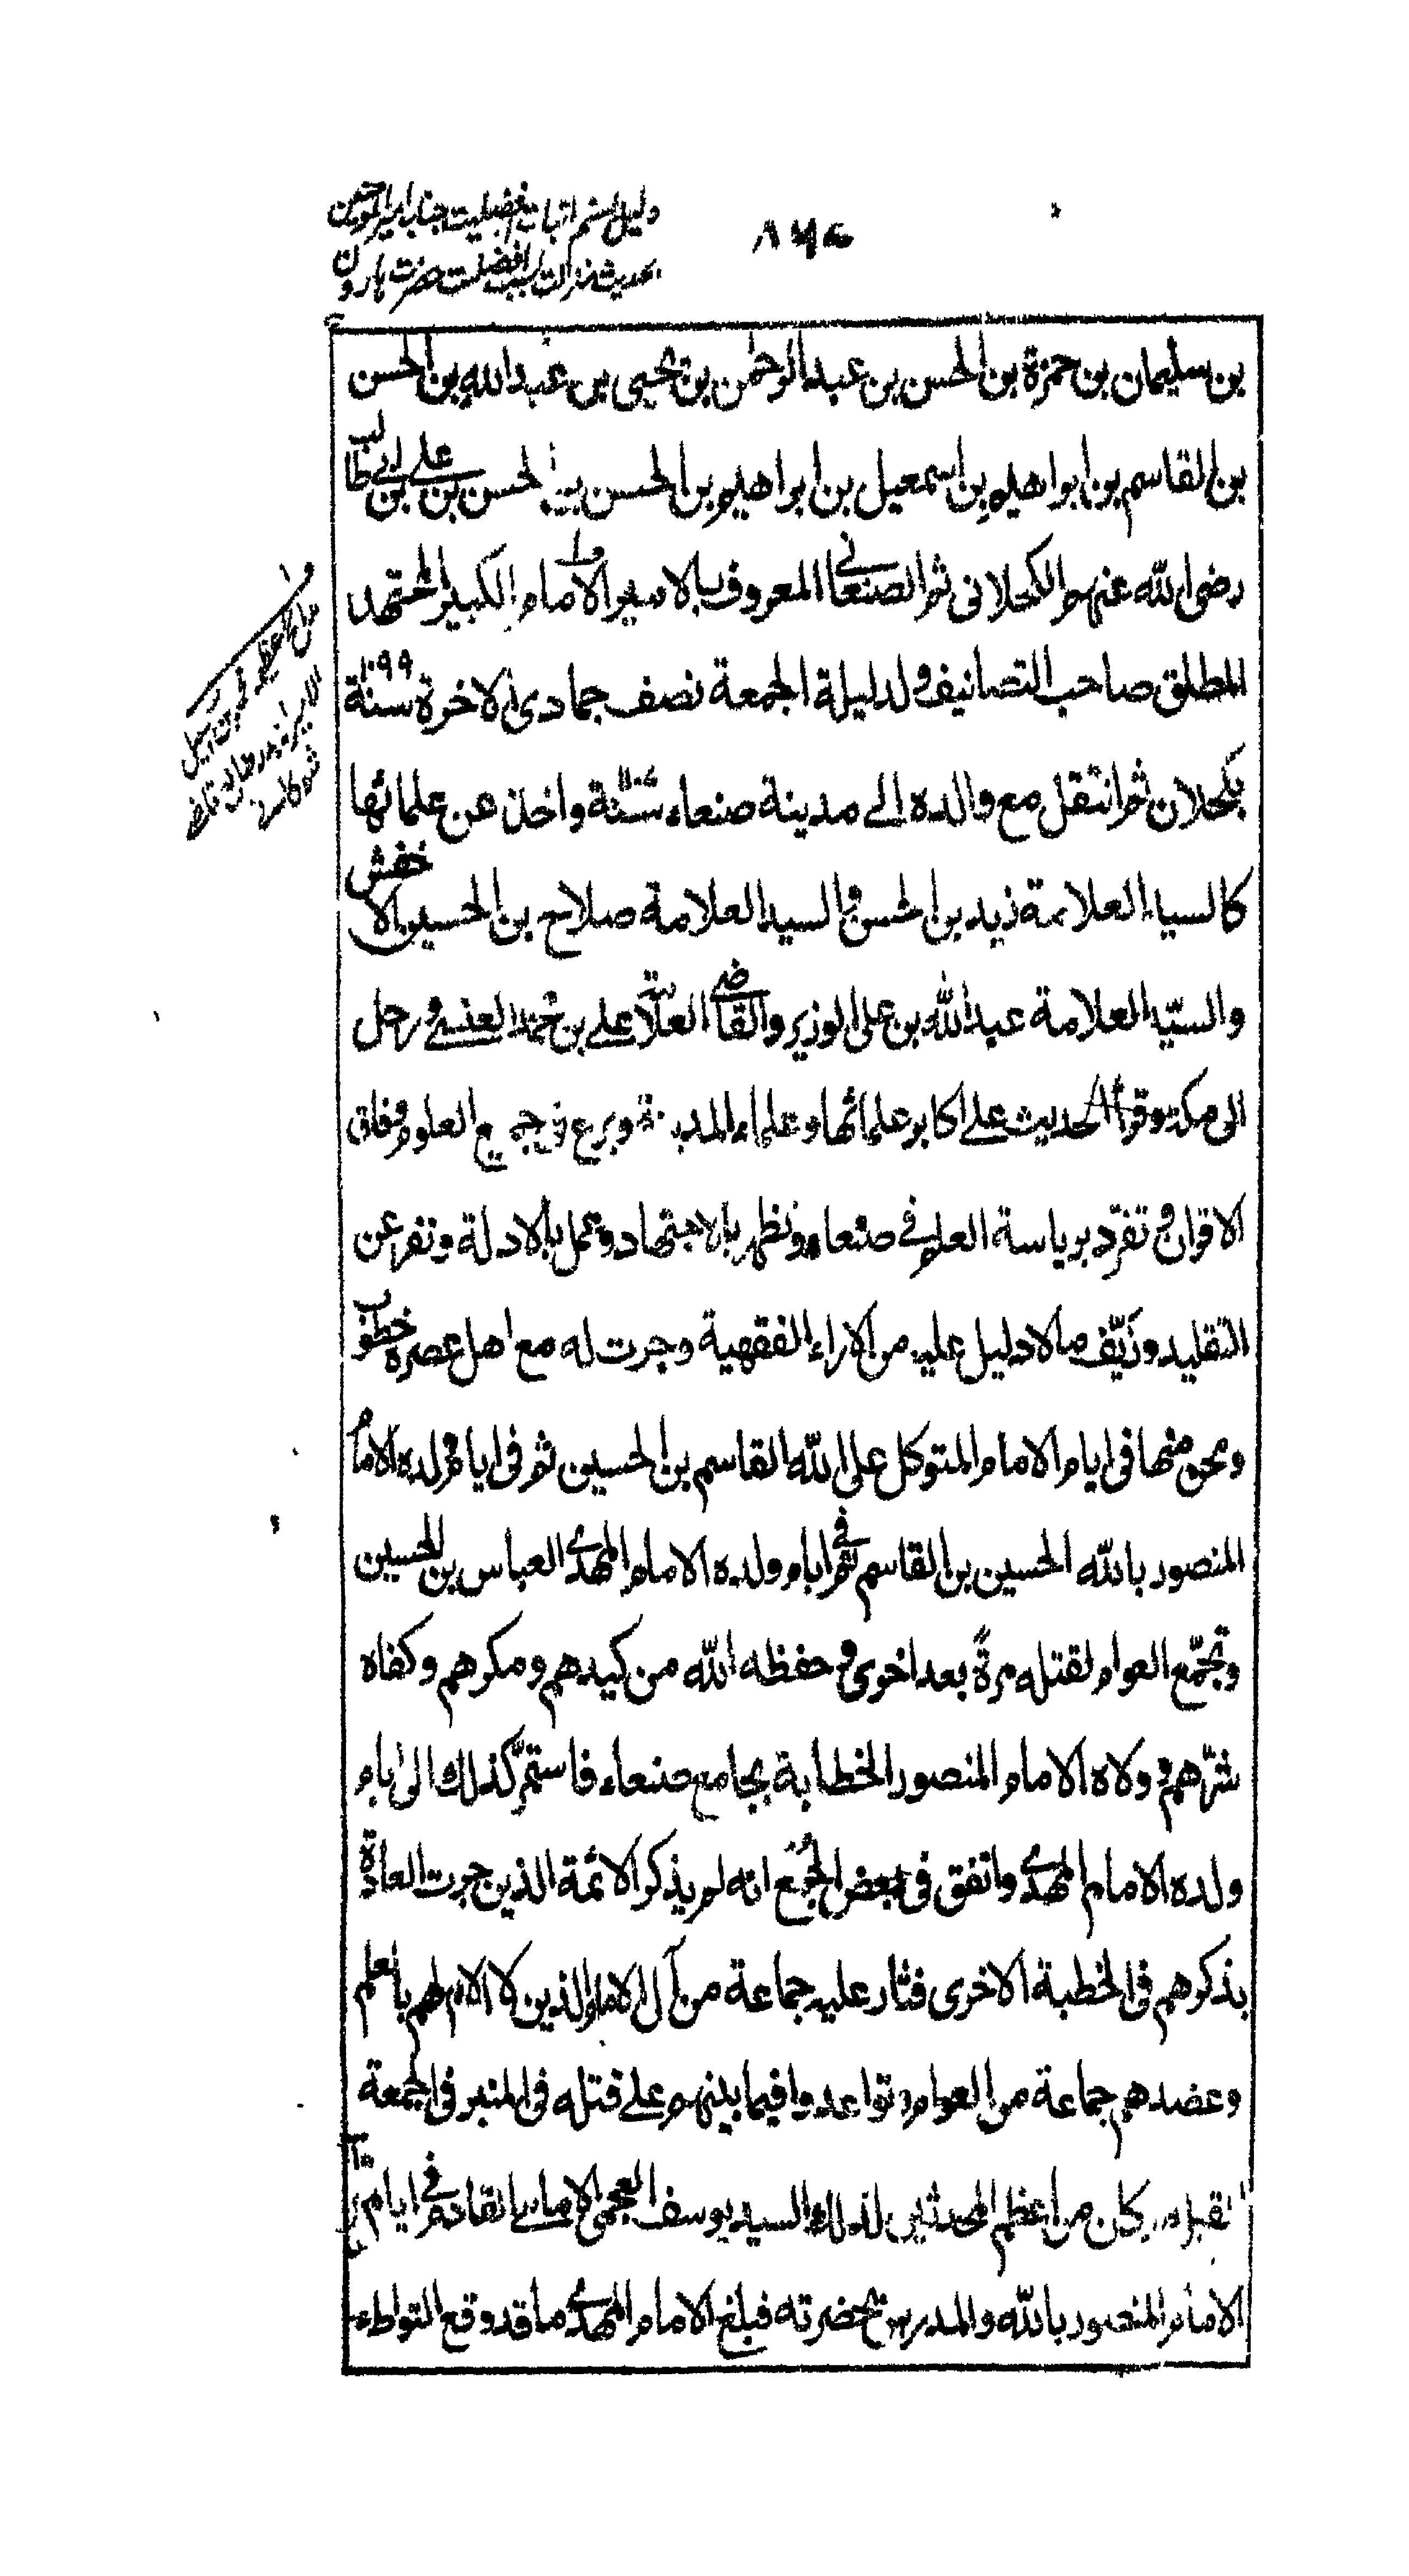 دلیل ہشتم اثبات افضلیت جناب امیر المومنین
بحدیث منزلت بسبب افضلیت حضرت ہارون
بن سليمان بن حمزة بن الحسن بن عبد الرحمن بن يحيى بن عبد الله بن الحسن
بن القاسم بن ابراهيم بن اسمعيل بن ابراهيم بن الحسن بن الحسن بن علي بن ابي طالب
رضي الله عنهم الكحلاني ثم الصنعاني المعروف بالامير الامام الكبير المجتهد
المطلق صاحب التصانيف ولد ليلة الجمعة نصف جمادى الاخرة سنة ١٠٩٩
بكحلان ثم انتقل مع والده الى مدينة صنعاء سنة واخذ عن علمائها
كالسيد العلامة زيد بن الحسن والسيد العلامة صلاح بن الحسين الاخفش
والسيّد العلامة عبد الله بن على الوزير والقاضي العلامة علي بن محمد العنسي ورحل
الى مكة وقرأ الحديث على اكابر علمائها وعلماء المدينة وبرع في جميع العلوم وفاق
الاقران وتفرّد برياسة العلم في صنعاء وتظهر بالاجتهاد وعمل بالادلة ونفر عن
التقليد وزيّف مالا دليل عليه من الاراء الفقهية وجرت له مع اهل عصره خطوب
ومحن منها فى ايام الامام المتوكل على الله القاسم بن الحسين ثم فى ايام ولده الامام
المنصور بالله الحسين بن القاسم ثم في ايام ولده الامام المهدي العباس بن الحسين
وتجمّع العوام لقتله مرةً بعد اخرى وحفظه الله من كيدهم ومكرهم وكفاه
شرّهم وولاه الامام المنصور الخطابة بجامع صنعاء فاستمرّ كذلك الى ايام
ولده الامام المهدي واتفق فى بعض الجمع انه لم يذكر الائمة الذين جرت العادة
بذكرهم فى الخطبة الاخرى فثار عليه جماعة من آل الامام الذين لا المام لهم بالعلم
وعضدهم جماعة من العوام وتواعدوا فيما بينهم على قتله فى المنبر فى الجمعة
المقبلة وكان من اعظم المحدثين لذلك السيد يوسف العجمي الامامي القادم في ايام
الامام المنصور بالله والمدرس بحضرته فبلغ الامام المهدي ما قد وقع التواطء